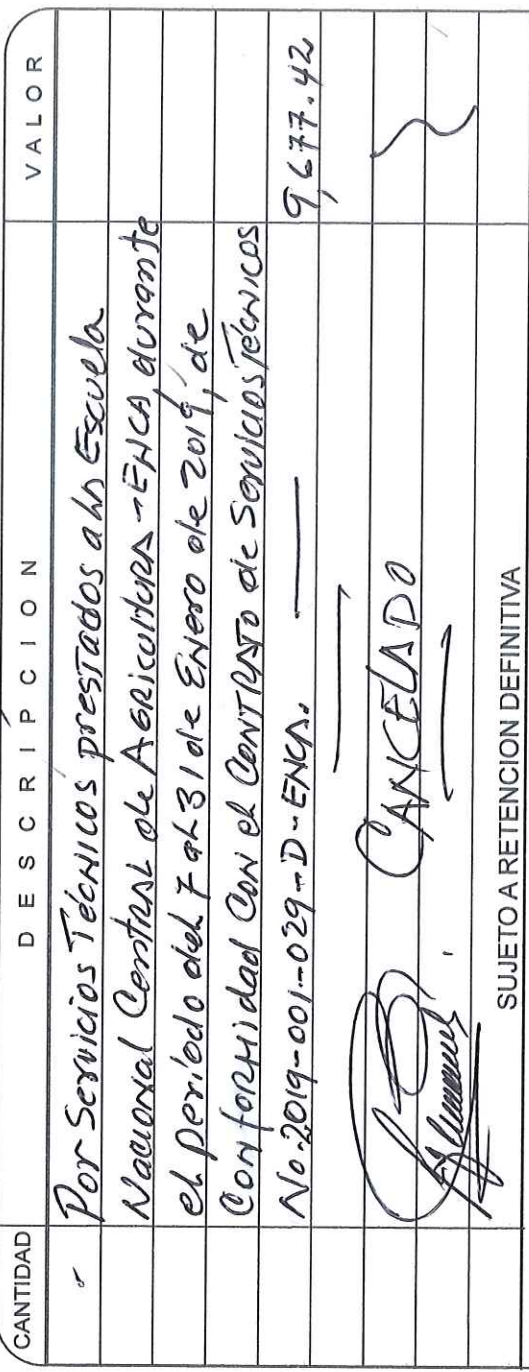 CANTIDAD DESCRIPCIÓN VALOR
Por Servicios Técnicos prestados a la Escuela
Nacional Central de Agricultura -ENCA durante
el período del 7 al 31 de Enero de 2019, de
Conformidad Con el Contrato de Servicios Técnicos
No. 2019-001-029-D-ENCA. 9,677.42
CANCELADO
SUJETO A RETENCION DEFINITIVA